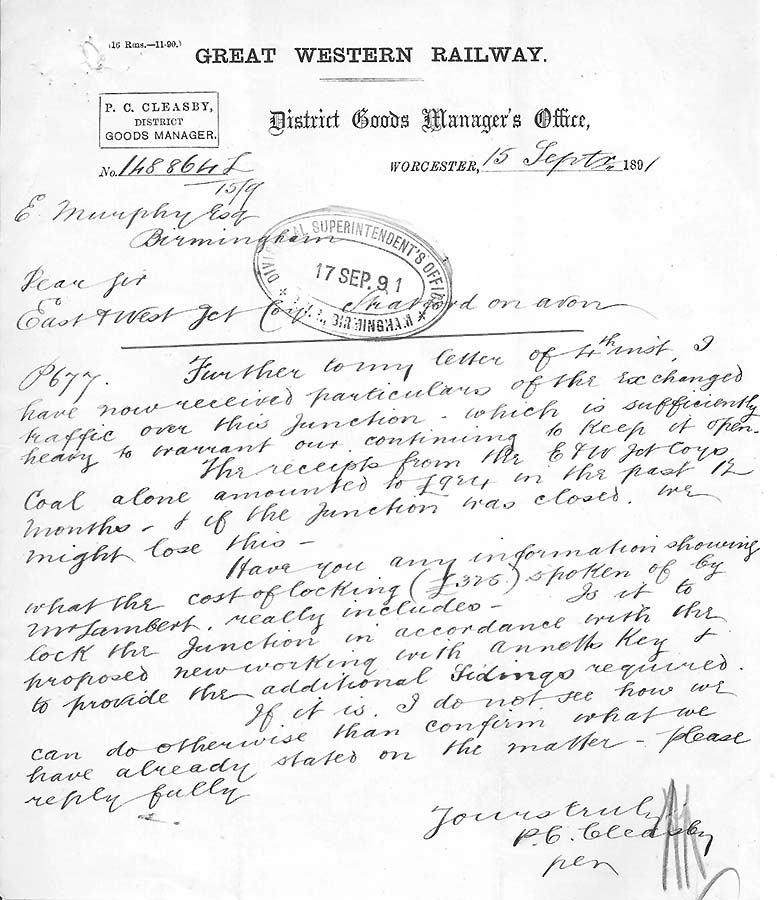 (16 Rms.—11-90.)
GREAT WESTERN RAILWAY.
P. C. CLEASBY,
DISTRICT
GOODS MANAGER.
District Goods Manager's Office,
No. 148864 L
15/9
WORCESTER, 15 Septr 1891
E. Murphy Esq
Birmingham
DIVISIONAL SUPERINTENDENT'S OFFICE
17 SEP. 91
BIRMINGHAM
Dear Sir
East & West Jct Coy. Stratford on avon
P677. Further to my letter of 4th inst, I
have now received particulars of the exchanged
traffic over this Junction - which is sufficiently
heavy to warrant our continuing to keep it open.
The receipts from the E & W Jct Coys
Coal alone amounted to £924 in the past 12
months - & if the Junction was closed, we
might lose this -
Have you any information showing
what the cost of locking (£326) spoken of by
Mr Lambert, really includes - Is it to
lock the Junction in accordance with the
proposed new working with Annetts Key &
to provide the additional Sidings required.
If it is, I do not see how we
can do otherwise than confirm what we
have already stated on the matter - please
reply fully
Yours truly
P.C. Cleasby
per